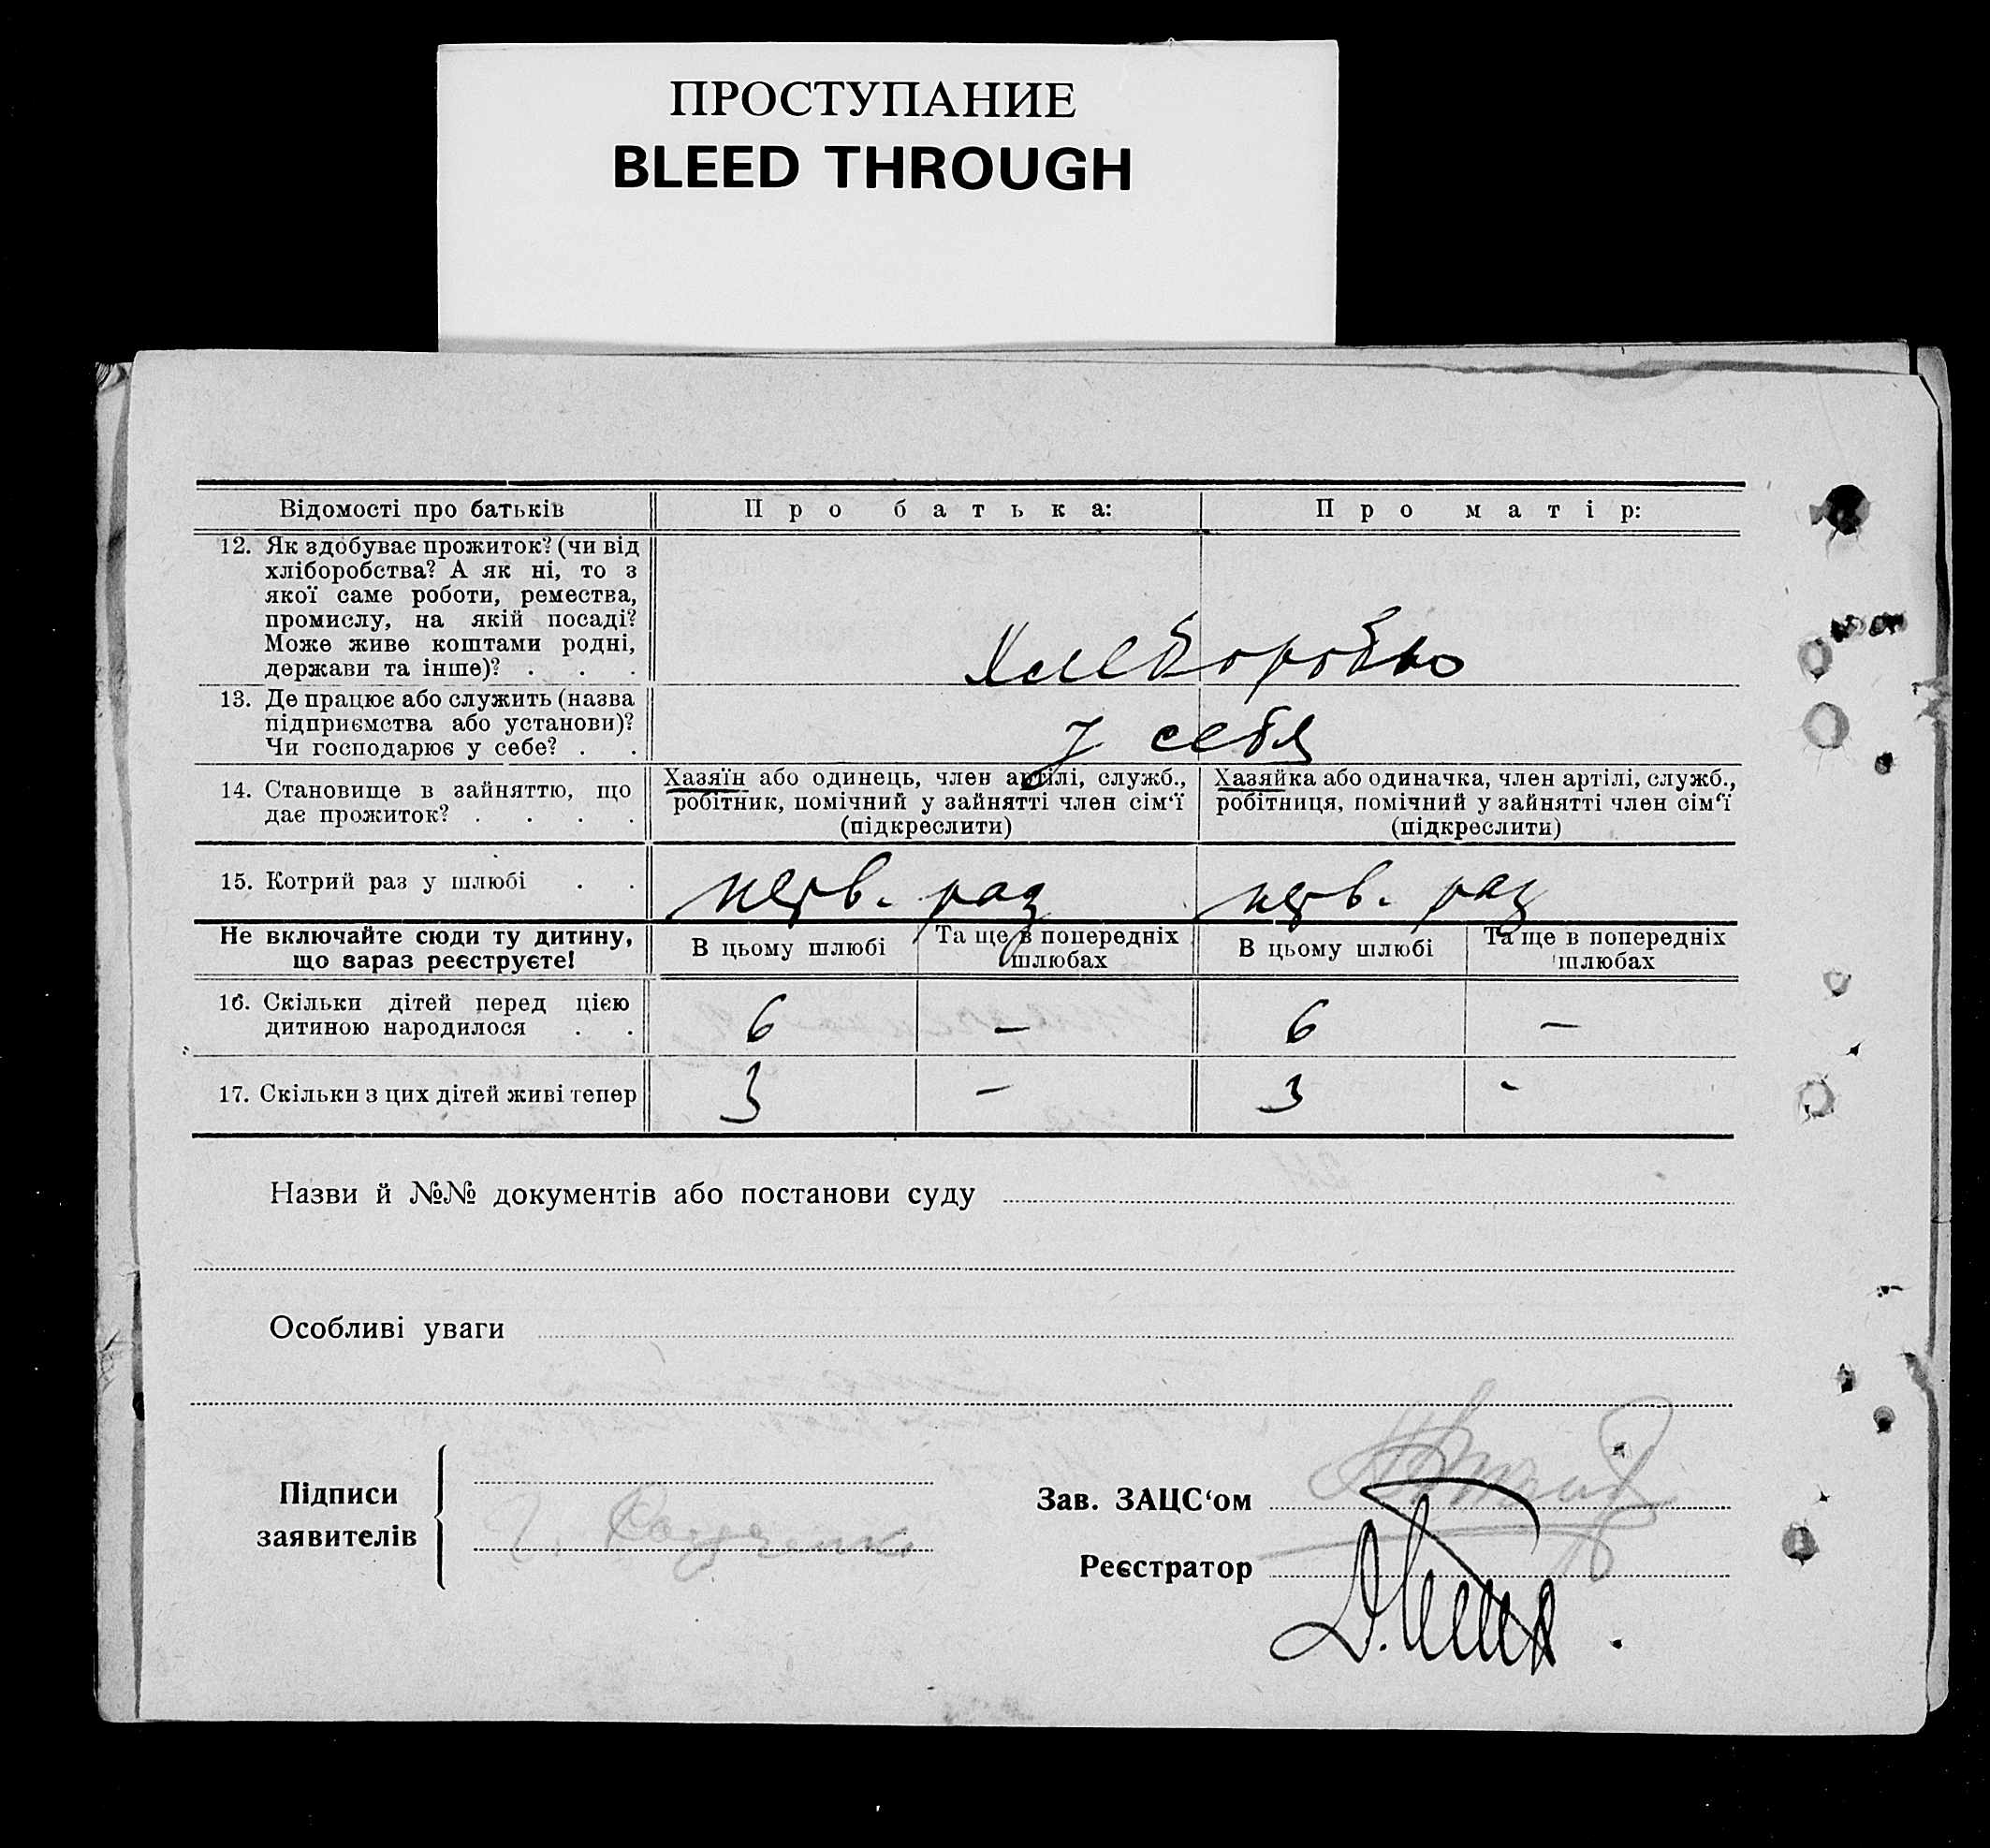 ПРОСТУПАНИЕ
BLEED THROUGH
Відомості про батьків
Про батька:
Про матір:
12. Як здобуває прожиток? (чи від
хліборобства? А як ні, то з
якої саме роботи, ремества,
промислу, на якій посаді?
Може живе коштами родні,
держави та інше)? . . .
Хлеборобю
13. Де працює або служить (назва
підприємства або установи)?
Чи господарює у себе? . .
у себя
14. Становище в зайняттю, що
дає прожиток? . . . .
Хазяїн або одинець, член артілі, служб.,
робітник, помічний у зайнятті член сім‘ї
(підкреслити)
Хазяйка або одиначка, член артілі, служб.,
робітниця, помічний у зайнятті член сім‘ї
(підкреслити)
15. Котрий раз у шлюбі . .
перв. раз
перв. раз
Не включайте сюди ту дитину,
що вараз реєструєте!
В цьому шлюбі
Та ще в попередніх
шлюбах
В цьому шлюбі
Та ще в попередніх
шлюбах
16. Скільки дітей перед цією
дитиною народилося . .
6 — 6 —
17. Скільки з цих дітей живі тепер
3 — 3 -
Назви й №№ документів або постанови суду
Особливі уваги
Підписи
заявителів
Зав. ЗАЦС‘ом
Реєстратор